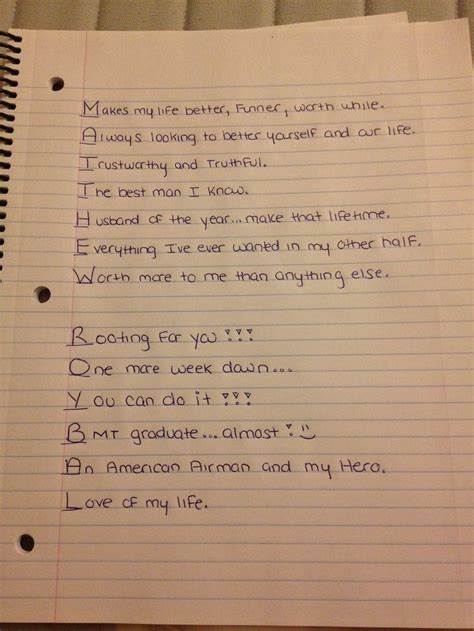 Makes my life better, Funner, worth while.
Always looking to better yourself and our life.
Trustworthy and Truthful.
The best man I know.
Husband of the year... make that lifetime.
Everything I've ever wanted in my other half.
Worth more to me than anything else.
Rooting For you!!!
One more week down...
You can do it!!!
BMT graduate... almost! :)
An American Airman and my Hero.
Love of my life.